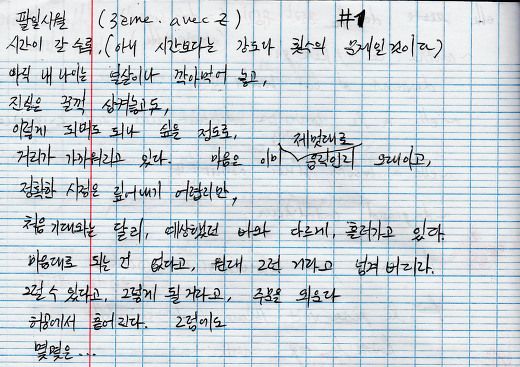 팔일사월 (3eme. avec Z) #1
시간이 갈 수록, (아니 시간보다는 강도나 횟수의 문제인 것이다)
마치 내 나이는 열살이나 깎아먹어 놓고,
진실은 꿀꺽 삼켜놓고도,
이렇게 되먹도 되나 싶을 정도로,
거리가 가까워지고 있다. 마음은 이미 제멋대로 움직인지 오래이고,
정확한 시점은 짚어내기 어렵지만,
처음 기대와는 달리, 예상했던 바와 다르게, 흘러가고 있다.
마음대로 되는 건 없다고, 원래 그런 거라고 넘겨 버리라.
그럴 수 있다고, 그렇게 될 거라고, 주문을 외운다
허공에서 흩어진다. 그럼에도
몇몇은...